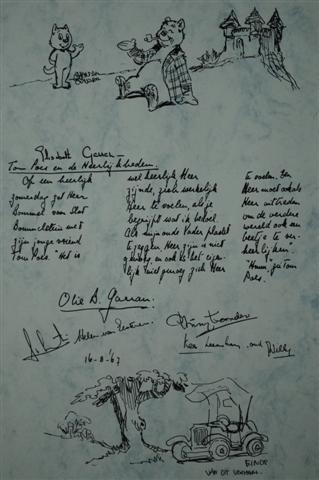 Elisabeth Garran.
Tom Poes en de Heerlijkheden.
Op een heerlijke
zomerdag zat Heer
Bommel van Slot
Bommelstein met
zijn jonge vriend
Tom Poes. "Het is
wel heerlijk Heer
zijnde, zich werkelijk
Heer te voelen, als je
begrijpt wat ik bedoel.
Als mijn oude Vader placht
te zeggen Heer zijn is niet
genoeg, en ook is het eigen-
lijk niet genoeg zich Heer
te voelen. Een
Heer moet ook als
Heer uittreden
om de verdere
wereld ook een
beetje te ver-
heerlijken".
"Hmm", zei Tom
Poes.
Olie B. Garran.
16-8-'67
and Willy
EINDE
VAN DIT VERHAAL